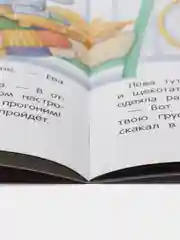 не. — Ева
а. — В от
ом настро
прогоним!
пройдёт.
Лёва тут
и щекотат
одеяла ра
— Вот
твою грус
скакал в